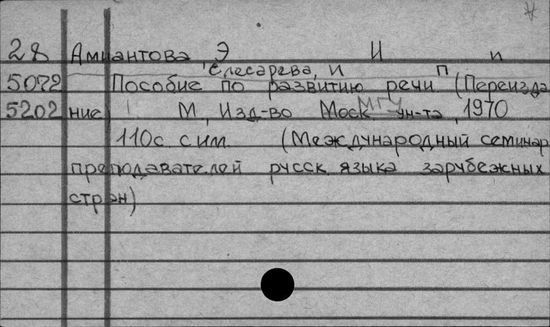 28 Амиантова, Э И и
Слесарева, И П
5072 Пособие по развитию речи (Переизда
5202 ние) М, Изд-во Моск МГУ ун-та, 1970
110с. с им. (Международный семинар
преподавателей русск языка зарубежных
стран)